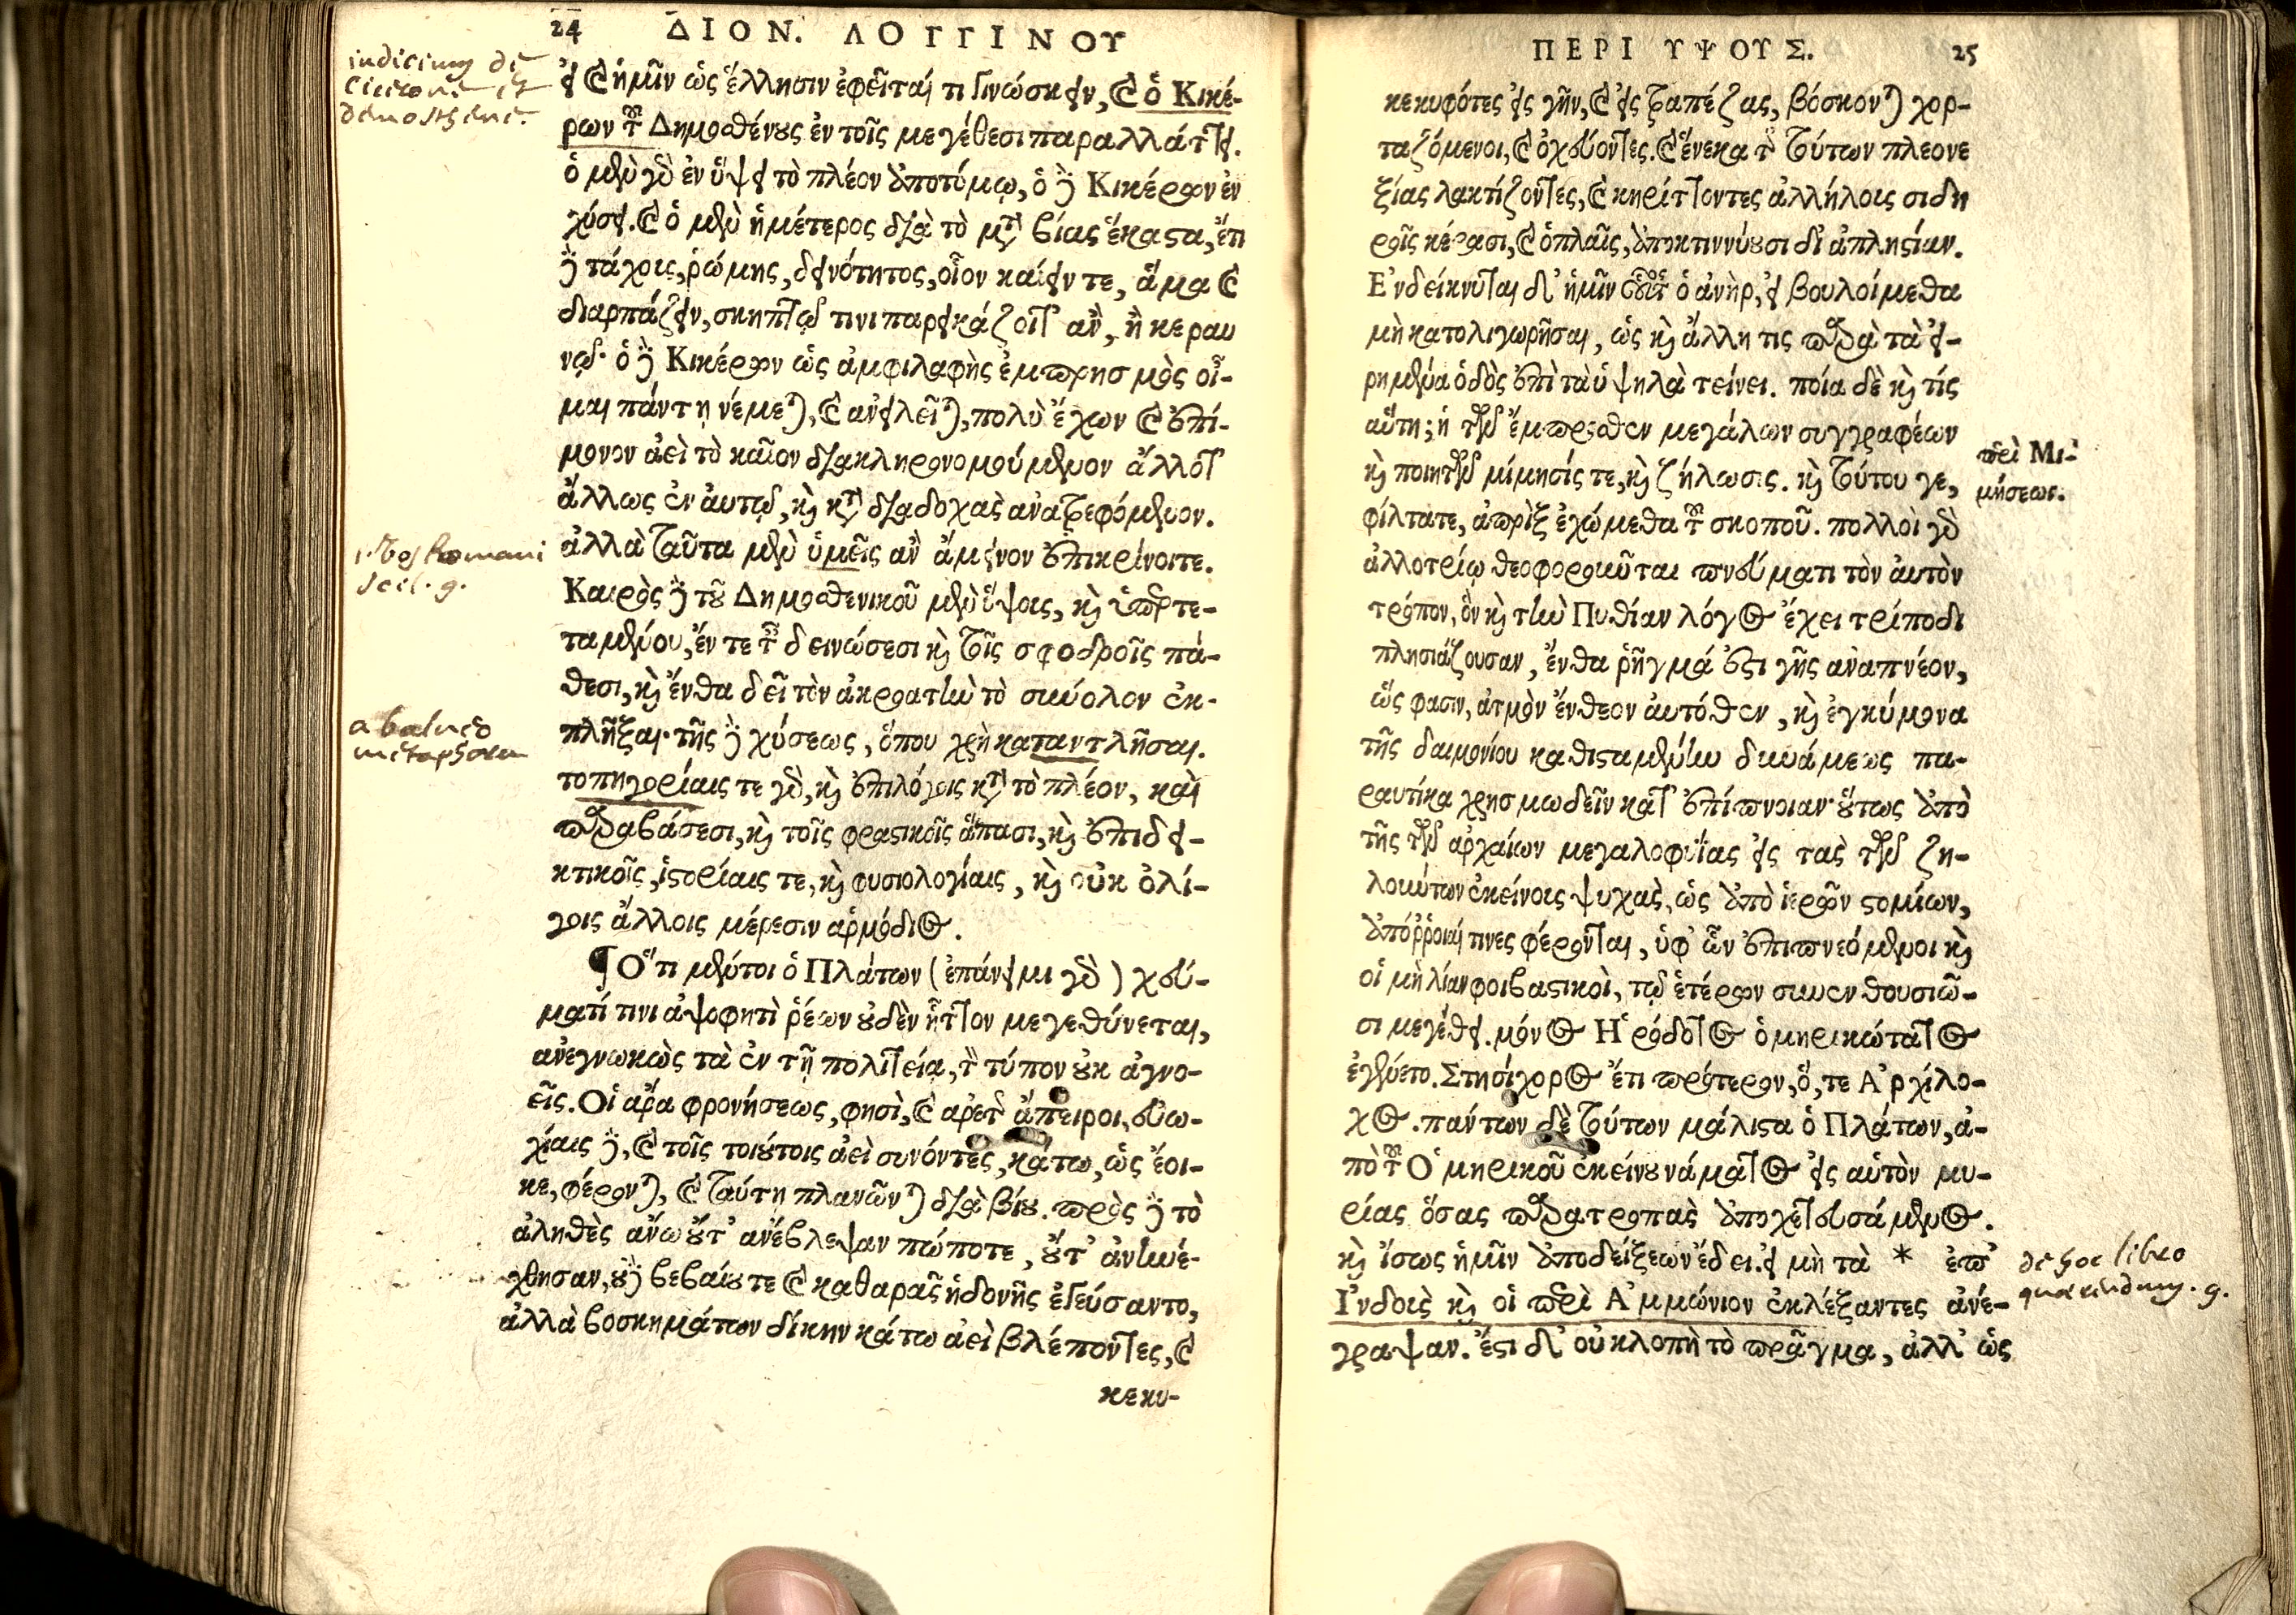 24 ΔΙΟΝ. ΛΟΓΓΙΝΟΥ
indicium de
Cicerone et
demosthene.
εἰ καὶ ἡμῖν ὡς ἕλλησιν ἐφεῖταί τι γινώσκειν, καὶ ὁ Κικέ-
ρων τοῦ Δημοσθένους ἐν τοῖς μεγέθεσι παραλλάττει.
ὁ μὲν γὰρ ἐν ὕψει τὸ πλέον ἀποτόμῳ, ὁ δὲ Κικέρων ἐν
χύσει. καὶ ὁ μὲν ἡμέτερος διὰ τὸ μετὰ βίας ἕκαστα, ἔτι
δὲ τάχους, ῥώμης, δεινότητος, οἷον καίειν τε, ἅμα καὶ
διαρπάζειν, σκηπτῷ τινι παρεικάζοιτ' ἂν, ἢ κεραυ
νῷ· ὁ δὲ Κικέρων ὡς ἀμφιλαφὴς ἐμπρησμὸς οἶ-
μαι πάντη νέμεται, καὶ ἀνειλεῖται, πολὺ ἔχων καὶ ἐπί-
μονον ἀεὶ τὸ καῖον διακληρονομούμενον ἄλλοτ'
ἄλλως ἐν αὐτῷ, καὶ κατὰ διαδοχὰς ἀνατρεφόμενον.
ἀλλὰ ταῦτα μὲν ὑμεῖς ἂν ἄμεινον ἐπικρίνοιτε.
vos Romani
scil. g.
Καιρὸς δὲ τοῦ Δημοσθενικοῦ μὲν ὕψους, καὶ ὑπερτε-
ταμένου, ἔν τε ταῖς δεινώσεσι καὶ τοῖς σφοδροῖς πά-
θεσι, καὶ ἔνθα δεῖ τὸν ἀκροατὴν τὸ σύνολον ἐκ-
πλῆξαι· τῆς δὲ χύσεως, ὅπου χρὴ καταντλῆσαι.
a balneo
metaphora
τοπηγορίαις τε γὰρ, καὶ ἐπιλόγοις κατὰ τὸ πλέον, καὶ
παραβάσεσι, καὶ τοῖς φραστικοῖς ἅπασι, καὶ ἐπιδει-
κτικοῖς, ἱστορίαις τε, καὶ φυσιολογίαις, καὶ οὐκ ὀλί-
γοις ἄλλοις μέρεσιν ἁρμόδιος.
¶ Ὅτι μέντοι ὁ Πλάτων (ἐπάνειμι γὰρ) χεύ-
ματί τινι ἀψοφητὶ ῥέων οὐδὲν ἧττον μεγεθύνεται,
ἀνεγνωκὼς τὰ ἐν τῇ πολιτείᾳ, τὸν τύπον οὐκ ἀγνο-
εῖς. Οἱ ἄρα φρονήσεως, φησὶ, καὶ ἀρετῆς ἄπειροι, εὐω-
χίαις δὲ, καὶ τοῖς τοιούτοις ἀεὶ συνόντες, κάτω, ὡς ἔοι-
κε, φέρονται, καὶ ταύτῃ πλανῶνται διὰ βίου. πρὸς δὲ τὸ
ἀληθὲς ἄνω οὔτ' ἀνέβλεψαν πώποτε, οὔτ' ἀνηνέ-
χθησαν, οὐδὲ βεβαίου τε καὶ καθαρᾶς ἡδονῆς ἐγεύσαντο,
ἀλλὰ βοσκημάτων δίκην κάτω ἀεὶ βλέποντες, καὶ
κεκυ-
ΠΕΡΙ ΥΨΟΥΣ. 25
κεκυφότες εἰς γῆν, καὶ εἰς τραπέζας, βόσκονται χορ-
ταζόμενοι, καὶ ὀχεύοντες. καὶ ἕνεκα τῆς τούτων πλεονε
ξίας λακτίζοντες, καὶ κηρίττοντες ἀλλήλους σιδη
ροῖς κέρασι, καὶ ὁπλαῖς, ἀποκτιννύουσι δι' ἀπληστίαν.
Ἐνδείκνυται δ' ἡμῖν οὗτος ὁ ἀνὴρ, εἰ βουλοίμεθα
μὴ κατολιγωρῆσαι, ὡς καὶ ἄλλη τις παρὰ τὰ εἰ-
ρημένα ὁδὸς ἐπὶ τὰ ὑψηλὰ τείνει. ποία δὲ καὶ τίς
αὕτη; ἡ τῶν ἔμπροσθεν μεγάλων συγγραφέων
καὶ ποιητῶν μίμησίς τε, καὶ ζήλωσις. καὶ τούτου γε,
περὶ Μι-
μήσεως.
φίλτατε, ἀπρὶξ ἐχώμεθα τοῦ σκοποῦ. πολλοὶ γὰρ
ἀλλοτρίῳ θεοφοροῦνται πνεύματι τὸν αὐτὸν
τρόπον, ὃν καὶ τὴν Πυθίαν λόγος ἔχει τρίποδι
πλησιάζουσαν, ἔνθα ῥῆγμά ἐστι γῆς ἀναπνέον,
ὥς φασιν, ἀτμὸν ἔνθεον αὐτόθεν, καὶ ἐγκύμονα
τῆς δαιμονίου καθισταμένην δυνάμεως πα-
ραυτίκα χρησμωδεῖν κατ' ἐπίπνοιαν· οὕτως ἀπὸ
τῆς τῶν ἀρχαίων μεγαλοφυΐας εἰς τὰς τῶν ζη-
λούντων ἐκείνοις ψυχὰς, ὡς ἀπὸ ἱερῶν στομίων,
ἀπόῤῥοιαί τινες φέρονται, ὑφ' ὧν ἐπιπνεόμενοι καὶ
οἱ μὴ λίαν φοιβαστικοὶ, τῷ ἑτέρων συνενθουσιῶ-
σι μεγέθει. μόνος Ἡρόδοτος ὁμηρικώτατος
ἐγένετο. Στησίχορος ἔτι πρότερον, ὅ, τε Ἀρχίλο-
χος. πάντων δὲ τούτων μάλιστα ὁ Πλάτων, ἀ-
πὸ τοῦ Ὁμηρικοῦ ἐκείνου νάματος εἰς αὑτὸν μυ-
ρίας ὅσας παρατροπὰς ἀποχετευσάμενος.
καὶ ἴσως ἡμῖν ἀποδείξεων ἔδει. εἰ μὴ τὰ * ἐπ'
Ἰνδοὺς καὶ οἱ περὶ Ἀμμώνιον ἐκλέξαντες ἀνέ-
de hoc libro
quaerendum. g.
γραψαν. ἔστι δ' οὐ κλοπὴ τὸ πρᾶγμα, ἀλλ' ὡς